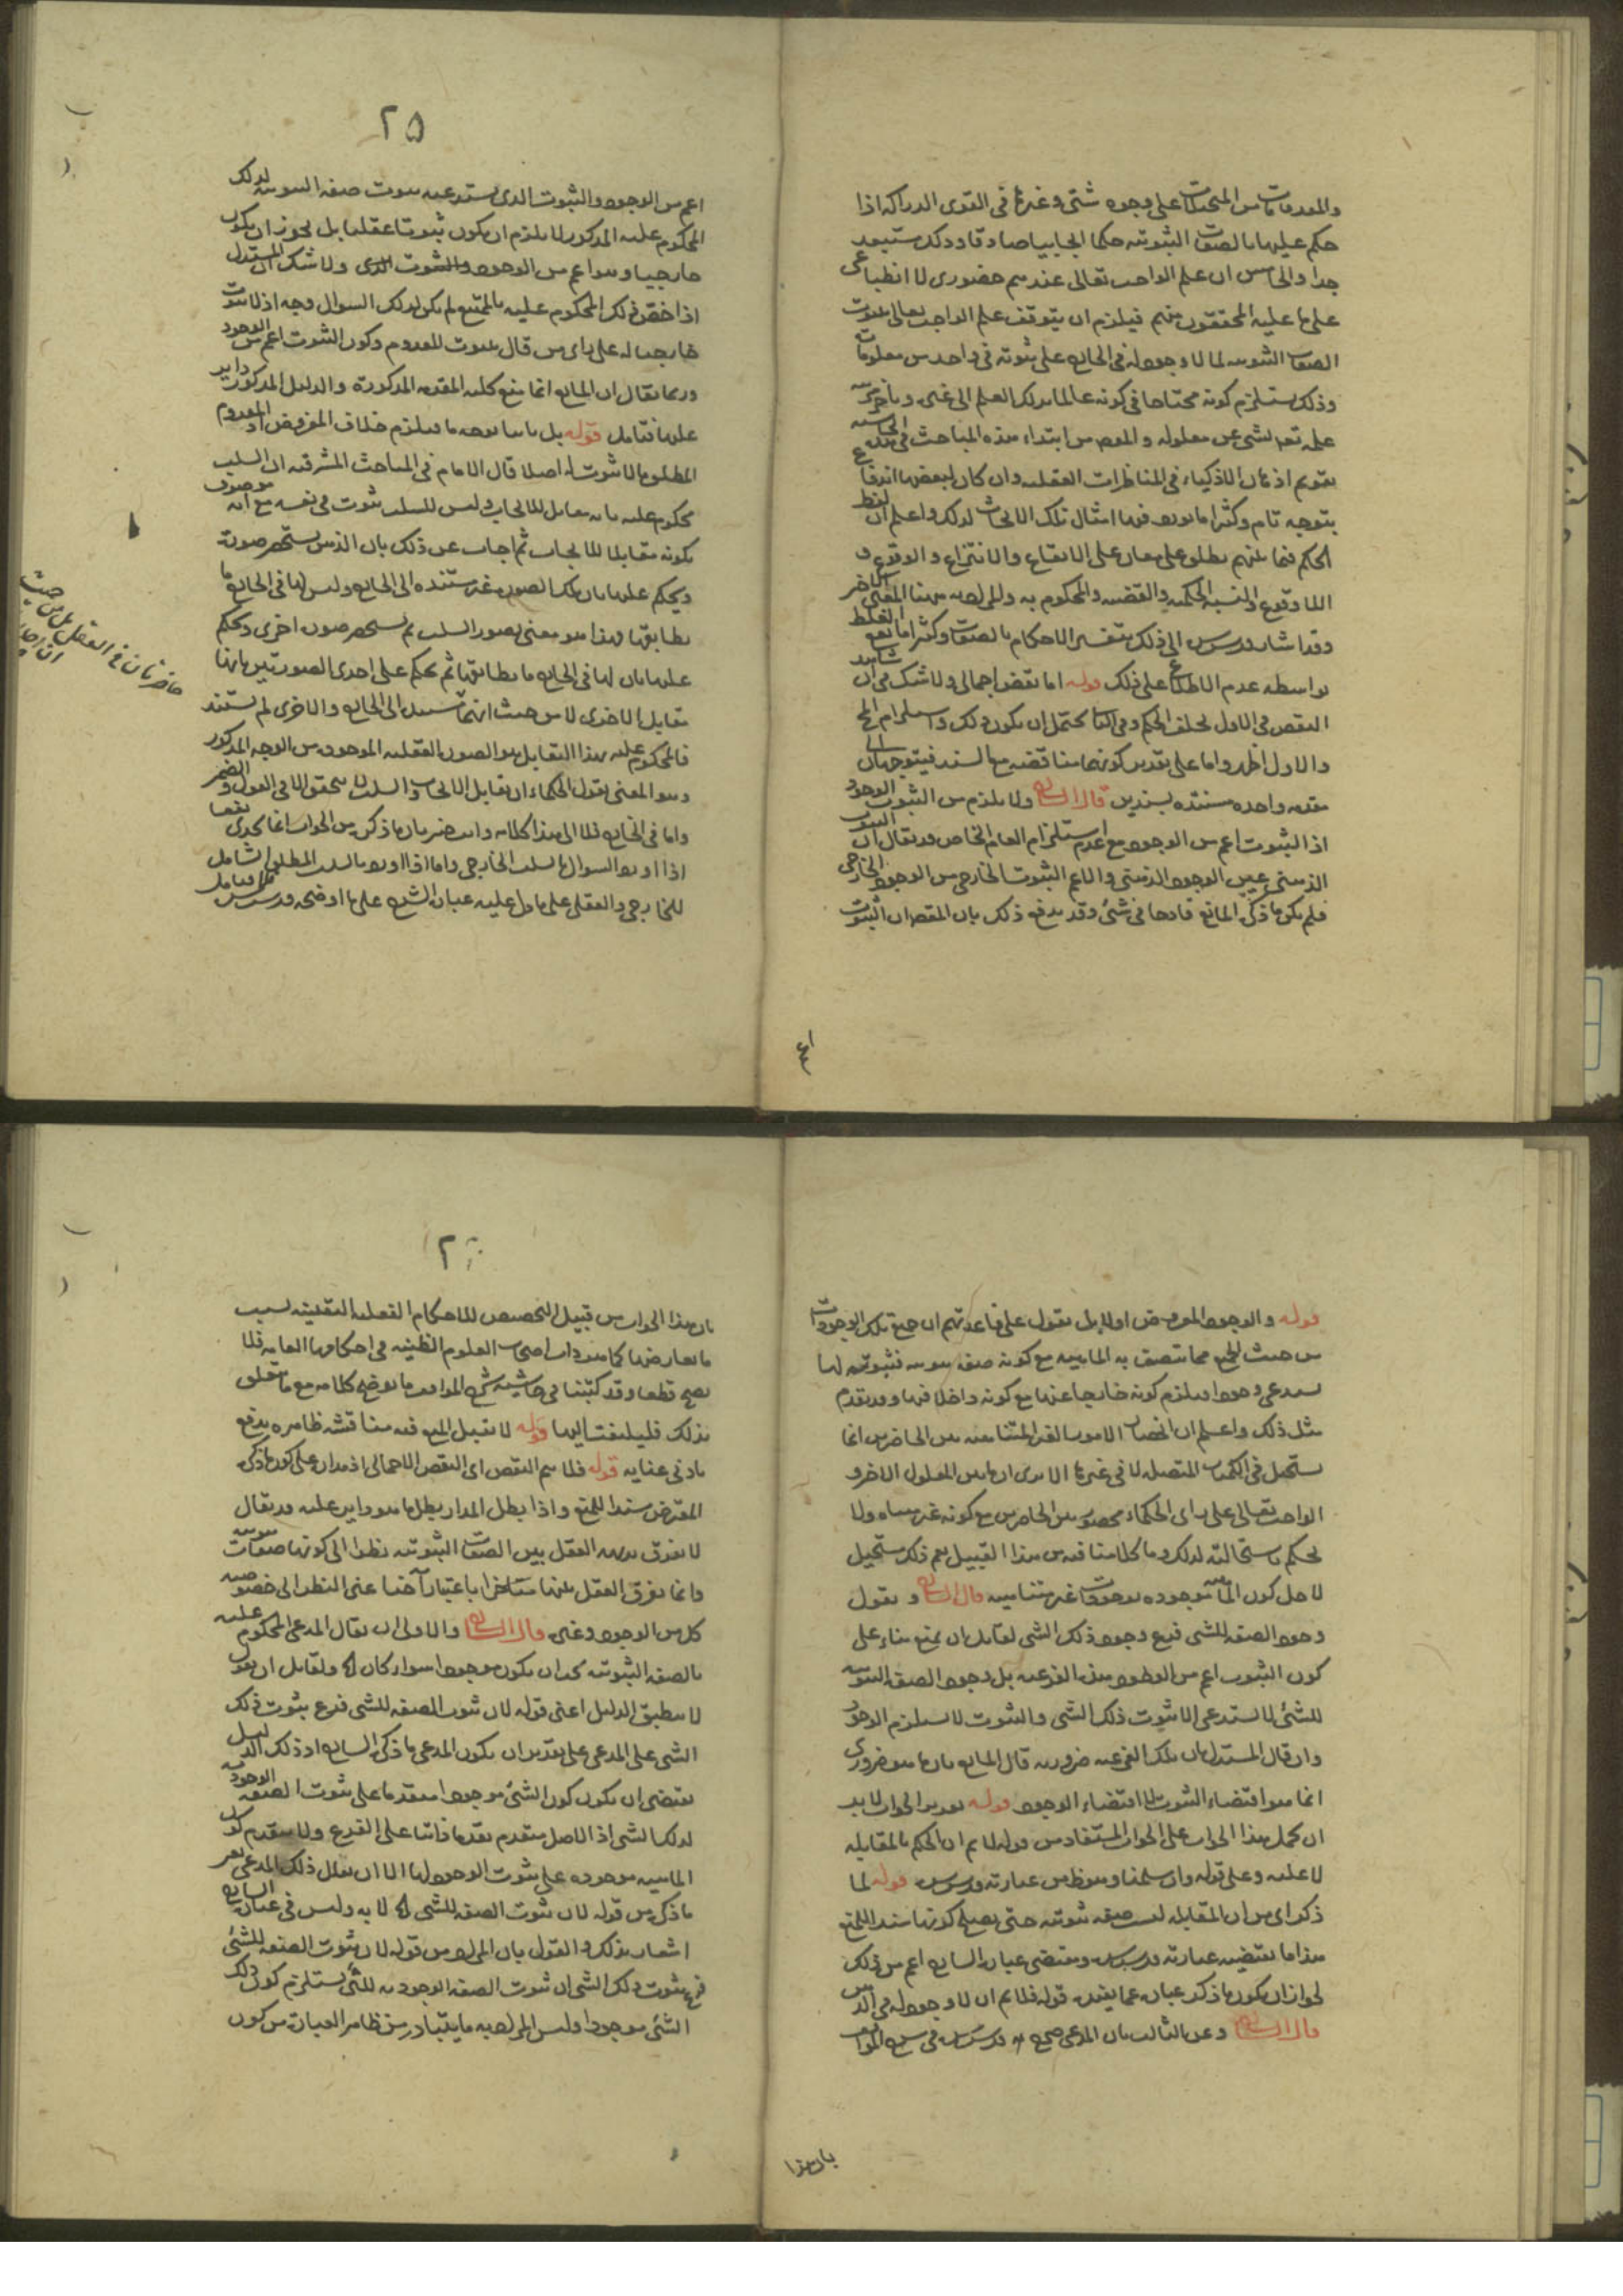 والمعدومات من المتخيلات على وجوه شتى وغيرها في القوى الدراكه اذا
حكم عليها بالصفات الثبوتيه حكما ايجابيا صادقا وذلك مستبعد
جدا والخامس ان علم الواجب تعالى عندهم حضوري لا انطباعي
على ما عليه المحققون منهم فيلزم ان يتوقف علم الواجب تعالى بثبوت
الصفات الثبوتيه لما لا وجود له في الخارج على ثبوته في واحد من معلوماته
وذلك يستلزم كونه محتاجا في كونه عالما بذلك العلم الى غيره وتأخر
علمه تعالى بشي عن معلوله والمقصود من ابتداء هذه المباحث
تقويم اذهان الاذكياء في المناظرات العقليه وان كان لبعضها اندفاع
بتوجيه تام وكثيرا ما نورد فيها امثال تلك الابحاث لذلك واعلم ان لفظ
الحكم فيما بينهم يطلق على معان على الايقاع والانتزاع والوقوع و
اللاوقوع والنسبه الحكميه والقضيه والمحكوم به والمراد ههنا المعنى الاخر
وقد اشار قدس سره الى ذلك بتفسير الاحكام بالصفات وكثيرا ما يقع الغلط
بواسطه عدم الاطلاع على ذلك قوله اما نقض اجمالي ولا شك في ان
النقض في الاول تخلف الحكم وفي الثاني يحتمل ان يكون ذلك واستلزام المح
والاول اظهر واما على تقدير كونهما مناقضه مع السند فيتوجهان الى
مقدمه واحده مستنده بسندين قال الشارح ولا يلزم من الثبوت الوجود
اذ الثبوت اعم من الوجود مع عدم استلزام العام الخاص وقد يقال ان الثبوت
الذهني عين الوجود الذهني والاعم الثبوت الخارجي من الوجود الخارجي
فلم يكن ما ذكره المانع قادحا في شئ وقد يدفع ذلك بان المقصود ان الثبوت
٢٥
اعم من الوجود والثبوت الذي يستدعيه ثبوت صفه الثبوتيه لذلك
المحكوم عليه المذكور لا يلزم ان يكون ثبوتا عقليا بل يجوز ان يكون
خارجيا وهو اعم من الوجود والثبوت الذي ولا شك ان المستدل
اذا خصص ذلك المحكوم عليه بالممتنع لم يكن لذلك السوال وجه اذ لا ثبوت
خارجيا له على راى من قال بثبوت المعدوم وكون الثبوت اعم من الوجود
وربما يقال ان المانع انما منع كليه المقدمه المذكورة والدليل المذكور داير
عليها فتامل قوله بل باسا بوجه ما فيلزم خلاف المفروض او المعدوم
المطلق ما لا ثبوت له اصلا قال الامام في المباحث المشرقيه ان السلب
محكوم عليه بانه مقابل للايجاب وليس للسلب ثبوت في نفسه مع انه موصوف
بكونه مقابلا للايجاب ثم اجاب عن ذلك بان الذهن يستحضر صورة
ويحكم عليها بان تلك الصوره غير مستنده الى الخارج وليس لها في الخارج ما
يطابقها وهذا هو معنى تصور السلب ثم يستحضر صورة اخرى ويحكم
عليها بان لها في الخارج ما يطابقها ثم يحكم على احدى الصورتين بانها
مقابل الاخرى لا من حيث انهما تستند الى الخارج والاخرى لم تستند
فالمحكوم عليه بهذا التقابل هو الصورة العقليه الموجوده من الوجه المذكور
وهو المعنى بقول الحكماء ان تقابل الايجاب والسلب لا يتحقق الا في القول والضمير
واما في الخارج فلا الى هذا كلامه وانت خبير بان ما ذكره من الجواب انما يجدى نفعا
اذا اورد السوال بالسلب الخارجي واما اذا اورد بالسلب المطلق الشامل
للخارجي والعقلي على ما دل عليه عبارة الشرح على ما اوضحه قدس سره فلا فتامل
حاضرتان في العقل بل من حيث
ان احدى
قوله والوجود المفروض اولا بل نقول على قاعدتهم ان جميع تلك الوجودات
من حيث الجميع مما تتصف به الماهيه مع كونه صفه ثبوتيه فثبوته لها
يستدعي وجودا فيلزم كونه خارجا عنها مع كونه داخلا فيها وقد تقدم
مثل ذلك واعلم ان انحصار الامور الغير المتناهيه بين الحاضرين انما
يستحيل في الكميات المتصله لا في غيرها الا يرى ان ما بين المعلول الاخر و
الواجب تعالى على راى الحكماء محصور بين الحاصرين مع كونه غير متناه ولا
يحكم باستحالته لذلك وما كلامنا فيه من هذا القبيل نعم ذلك مستحيل
لاجل كون الماهيه موجوده بوجودات غير متناهيه قال الشارح ونقول
وجود الصفه للشي فرع وجود ذلك الشي لقايل ان يمنع بناء على
كون الثبوت اعم من الوجود هذه الفرعيه بل وجود الصفه الثبوتيه
للشئ لا يستدعي الا ثبوت ذلك الشي والثبوت لا يستلزم الوجود
وان قال المستدل بان تلك الفرعيه ضروريه قال المانع بان ما هو ضروري
انما هو اقتضاء الثبوت لا اقتضاء الوجود قوله تقدير الجواب لا بد
ان يحمل هذا الجواب على الجواب المستفاد من قوله لا نم ان الحكم بالمقابله
لا عليه وعلى قوله وان سلمنا وهو ظاهر من عبارته قدس سره قوله لما
ذكره اى من ان المقابله ليست صفه ثبوتيه حتى يصلح كونها سندا للمنع
هذا ما يقتضيه عبارته قدس سره ومقتضى عبارة الشارح اعم من ذلك
لجواز ان يكون ما ذكر عبارة عما يفيده قوله فلا نم ان لا وجود له في الذهن
قال الشارح وعن الثالث بان المدعى صحيح قدس سره في شرح المواقف
بان هذا
٢
بان هذا الجواب من قبيل التخصيص للاحكام العقليه اليقينيه بسبب
ما يعارضها كما هو داب اصحاب العلوم الظنيه في احكامها العامه فلا
يصح قطعا وقد كتبنا في حاشية شرح المواقف ما يوضح كلامه مع ما يتعلق
بذلك فليلتفت اليها قوله لا يقبل المنع فيه مناقشه ظاهره يدفع
بادنى عنايه قوله فلا يتم النقض اى النقض الاجمالي اذ مداره على كون ما ذكره
المعترض سندا للمنع واذا بطل المدار بطل ما هو داير عليه وقد يقال
لا يفرق بديهه العقل بين الصفات الثبوتيه نظرا الى كونها صفات ثبوتيه
وانما يفرق العقل بينهما متاخرا باعتبار آخر اعنى النظر الى خصوصيه
كل من الوجود وغيره قال الشارح والاولى ان يقال المدعى المحكوم عليه
بالصفه الثبوتيه يجب ان يكون موجودا سواء كان اه ولقايل ان يقول
لا ينطبق الدليل اعنى قوله لان ثبوت الصفه للشي فرع ثبوت ذلك
الشي على المدعى على تقدير ان يكون المدعى ما ذكره الشارح اذ ذلك الدليل
يقتضى ان يكون كون الشئ موجودا متقدما على ثبوت الصفه الوجوديه
لذلك الشي اذ الاصل متقدم تقدما ذاتيا على الفرع ولا يتقدم كون
الماهيه موجوده على ثبوت الوجود لها الا ان يقال ذلك المدعى يغير
ما ذكره من قوله لان ثبوت الصفه للشي اه لا به وليس في عبارة الشارح
اشعار بذلك والقول بان المراد من قوله لان ثبوت الصفه للشئ
فرع ثبوت ذلك الشي ان ثبوت الصفه الوجوديه للشئ يستلزم كون ذلك
الشئ موجودا وليس المراد به ما يتبادر من ظاهر العبارة من كون